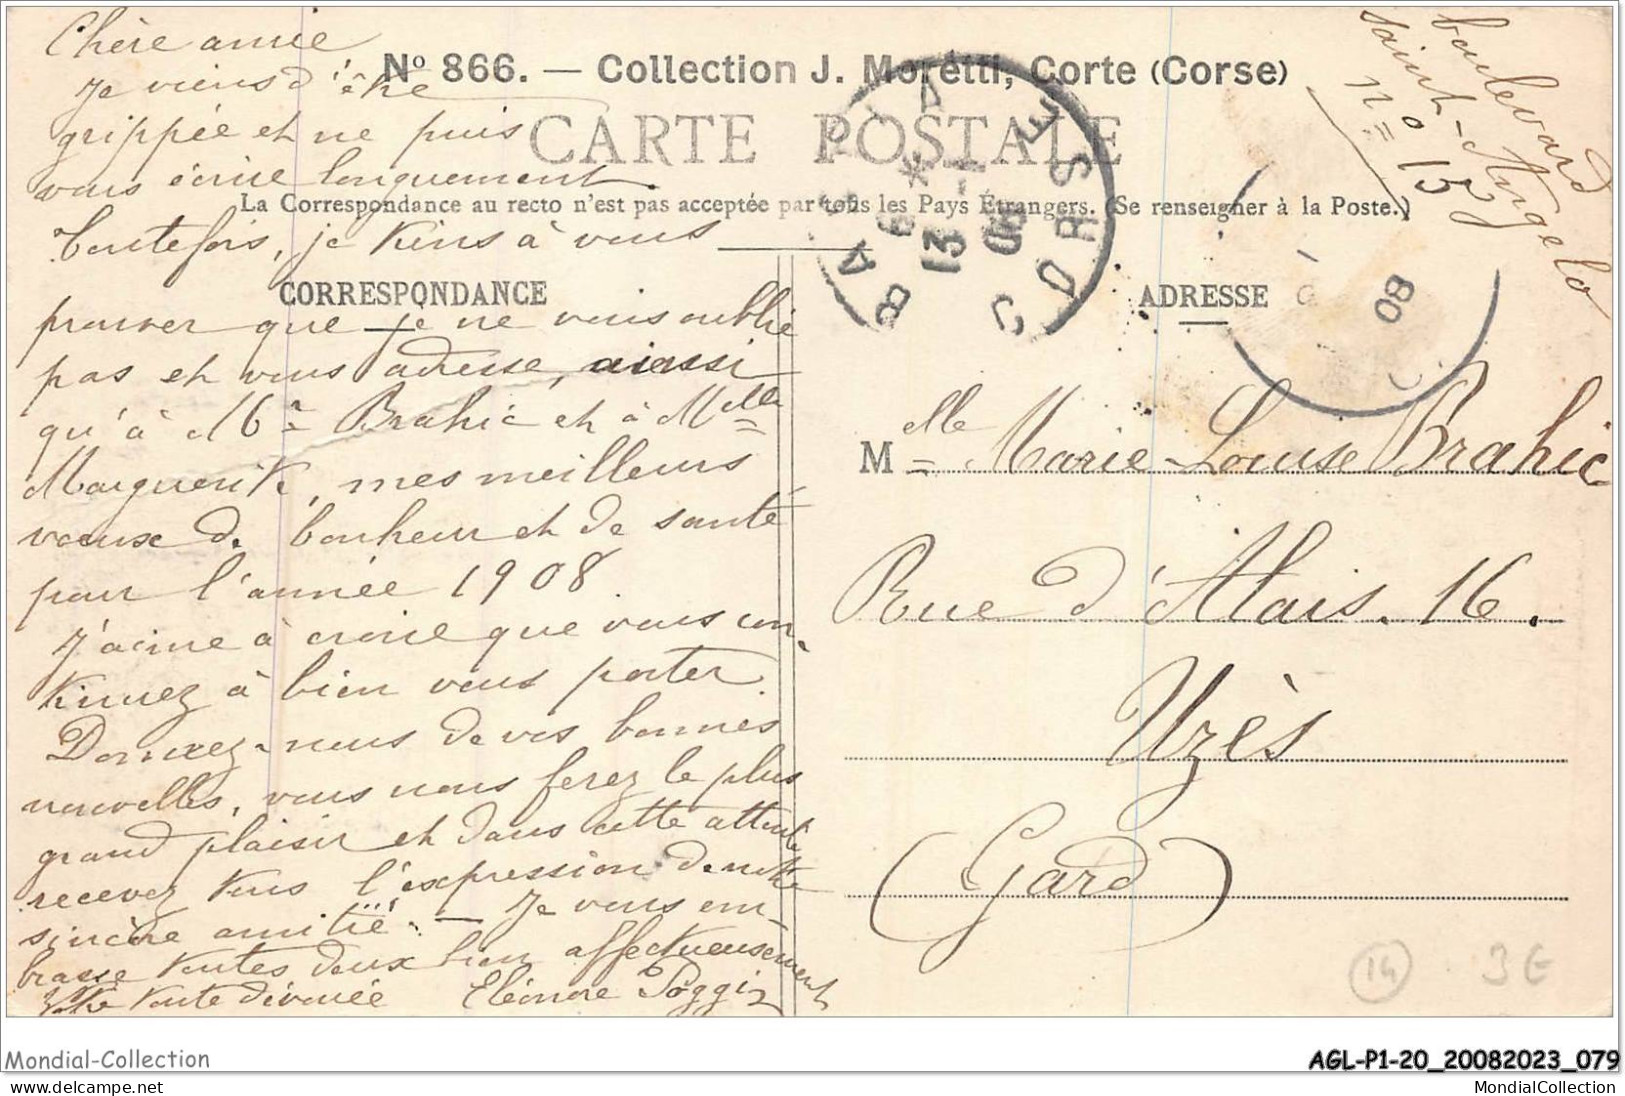 Chère amie
Je viens d'être
grippée et ne puis
vous écrire longuement.
Toutefois, je tiens à vous
prouver que je ne vous oublie
pas et vous adresse, ainsi
qu'à Mr Brahic et à Melle
Marguerite, mes meilleurs
voeux de bonheur et de santé
pour l'année 1908
J'aime à croire que vous con-
tinuez à bien vous porter.
Donnez-nous de vos bonnes
nouvelles, vous nous ferez le plus
grand plaisir et dans cette attente
recevez tous l'expression de notre
sincère amitié. — Je vous em-
brasse toutes deux bien affectueusement
Votre toute dévouée Eléonore Poggi
No 866. — Collection J. Moretti, Corte (Corse)
CARTE POSTALE
La Correspondance au recto n'est pas acceptée par tous les Pays Étrangers. (Se renseigner à la Poste.)
CORRESPONDANCE
ADRESSE
boulevard
saint-Angelo
no 15
BASTIA
CORSE
6 * -1
13
08
08
Melle Marie-Louise Brahic
Rue d'Alais. 16.
Uzès
(Gard)
14
3 €
Mondial-Collection
AGL-P1-20_20082023_079
www.delcampe.net
MondialCollection